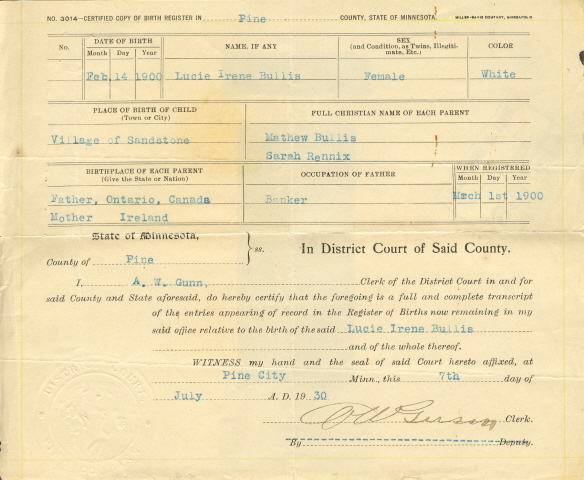 NO. 3014—CERTIFIED COPY OF BIRTH REGISTER IN Pine COUNTY, STATE OF MINNESOTA. MILLER-DAVIS COMPANY, MINNEAPOLIS
No. DATE OF BIRTH NAME, IF ANY SEX COLOR
Month Day Year (and Condition, as Twins, Illegiti-
mate, Etc.)
Feb. 14 1900 Lucie Irene Bullis Female White
PLACE OF BIRTH OF CHILD FULL CHRISTIAN NAME OF EACH PARENT
(Town or City)
Village of Sandstone Mathew Bullis
Sarah Rennix
BIRTHPLACE OF EACH PARENT OCCUPATION OF FATHER WHEN REGISTERED
(Give the State or Nation) Month Day Year
Father, Ontario, Canada Banker March 1st 1900
Mother Ireland
State of Minnesota,
ss. In District Court of Said County.
County of Pine
I, A. W. Gunn, Clerk of the District Court in and for
said County and State aforesaid, do hereby certify that the foregoing is a full and complete transcript
of the entries appearing of record in the Register of Births now remaining in my
said office relative to the birth of the said Lucie Irene Bullis
and of the whole thereof.
WITNESS my hand and the seal of said Court hereto affixed, at
Pine City Minn., this 7th day of
July A. D. 19 30
Clerk.
By Deputy.